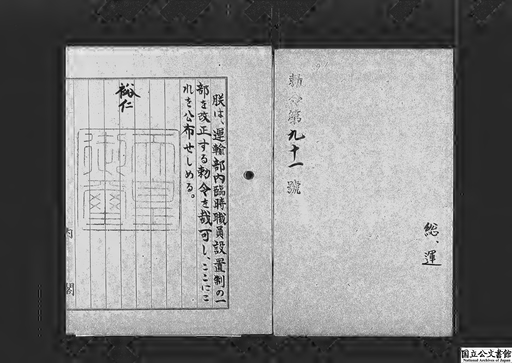 勅令第九十一號
総、運
朕は、運輸部内臨時職員設置制の一
部を改正する勅令を裁可し、ここにこ
れを公布せしめる。
裕仁
天皇御璽
内閣
国立公文書館
National Archives of Japan